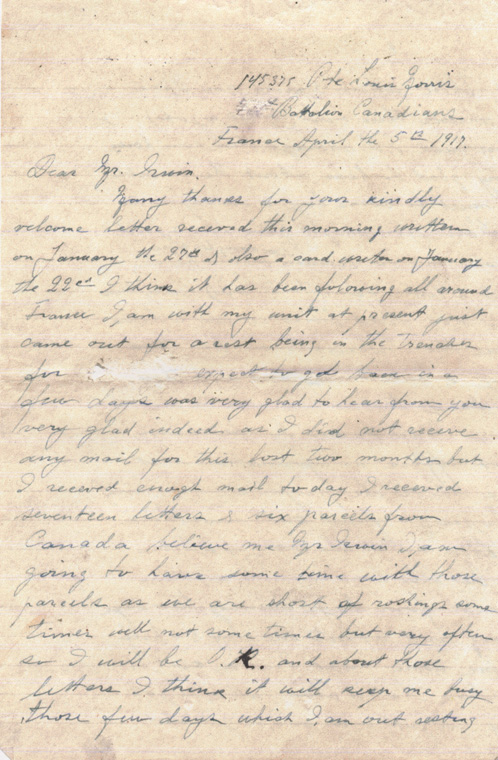 145375 Pte Louis Norris
Battalion Canadians
France April the 5th 1917.
Dear Mr. Irwin.
Many thanks for your kindly
welcome letter receved this morning written
on January the 27th & also a card writen on January
the 22ed I think it has been following all around
France I, am with my unit at present just
came out for a rest being in the trenches
for expect to go back in a
few days was very glad to hear from you
very glad indeed as I did not receive
any mail for this last two months but
I receved enogh mail to day I receved
seventeen letters & six parcels from
Canada believe me Mr Irwin I, am
going to have some time with those
parcels as we are short of roshings some
times well not some times but very often
so I will be O.K. and about those
letters I think it will keep me busy
those few days which I, am out resting